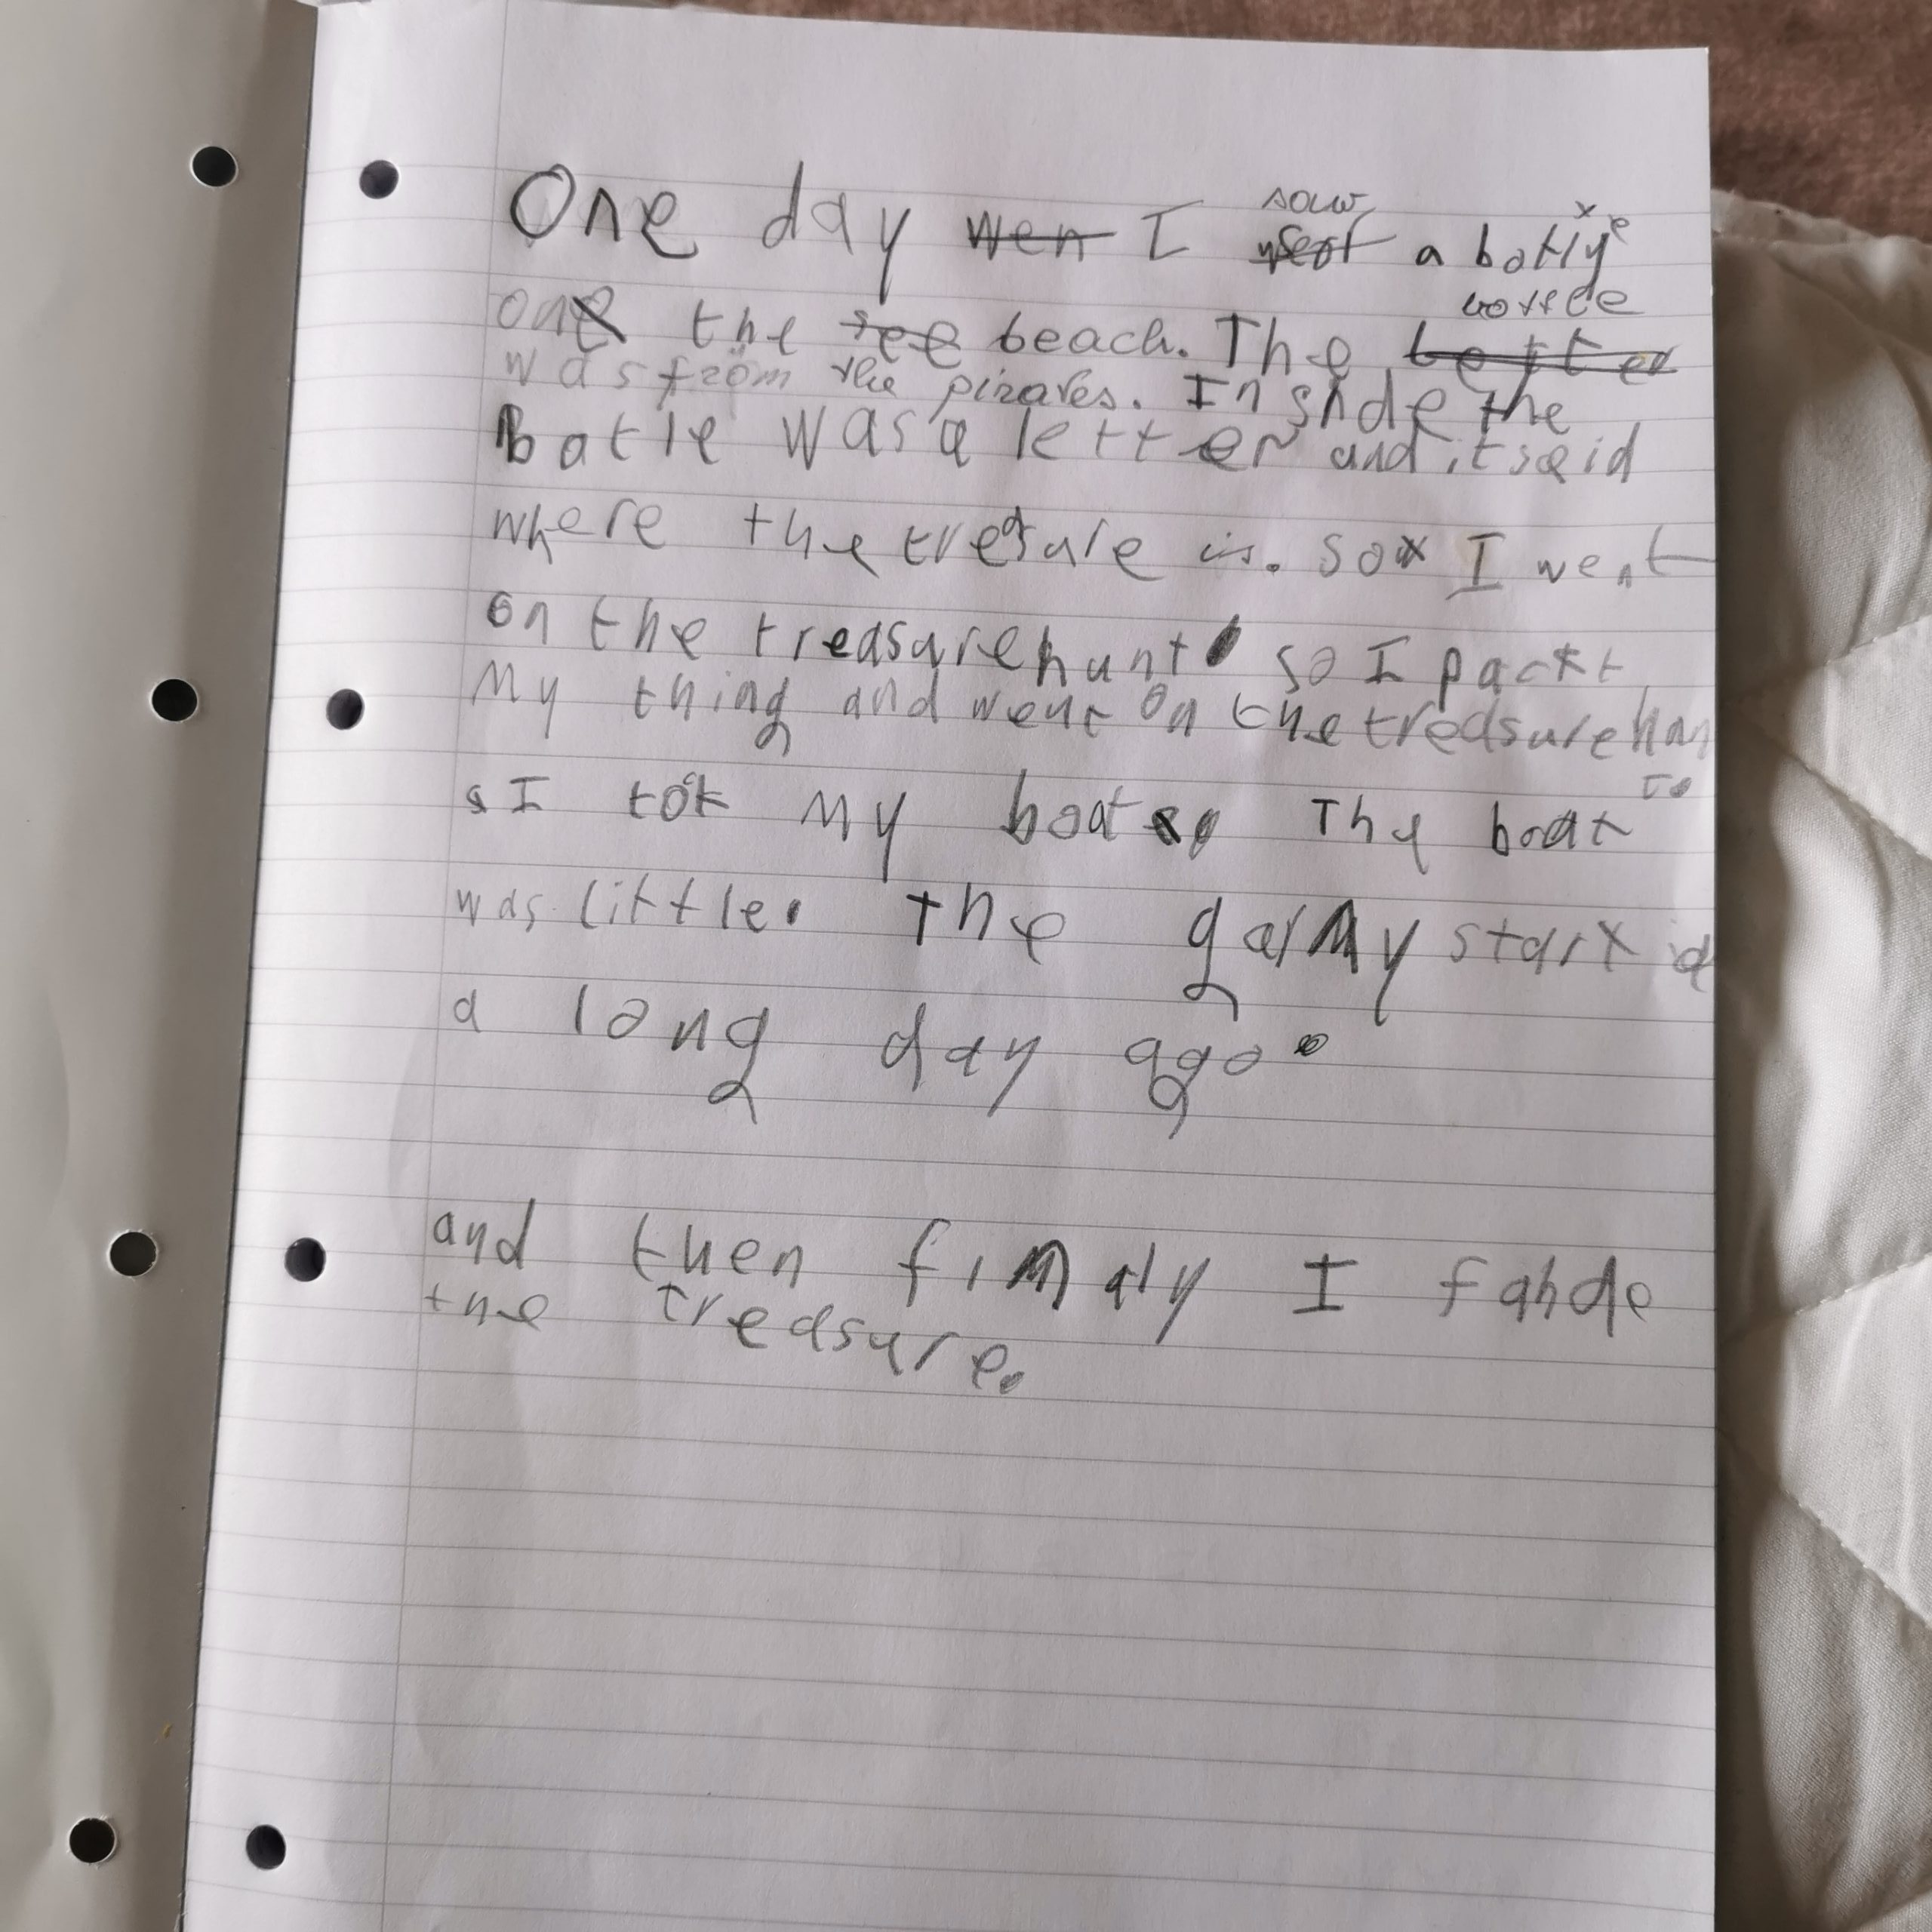 One day wen I saw a botlye
on the see beach. The bottle
was from the pirates. Inside the
Botle was a letter and it said
where the treasure is. so I went
on the treasurehunt so I packt
My thing and went on the treasurehan
I tok My boat. The boat
was little. The garny start
a long day ago.
and then finaly I fande
the treasure.